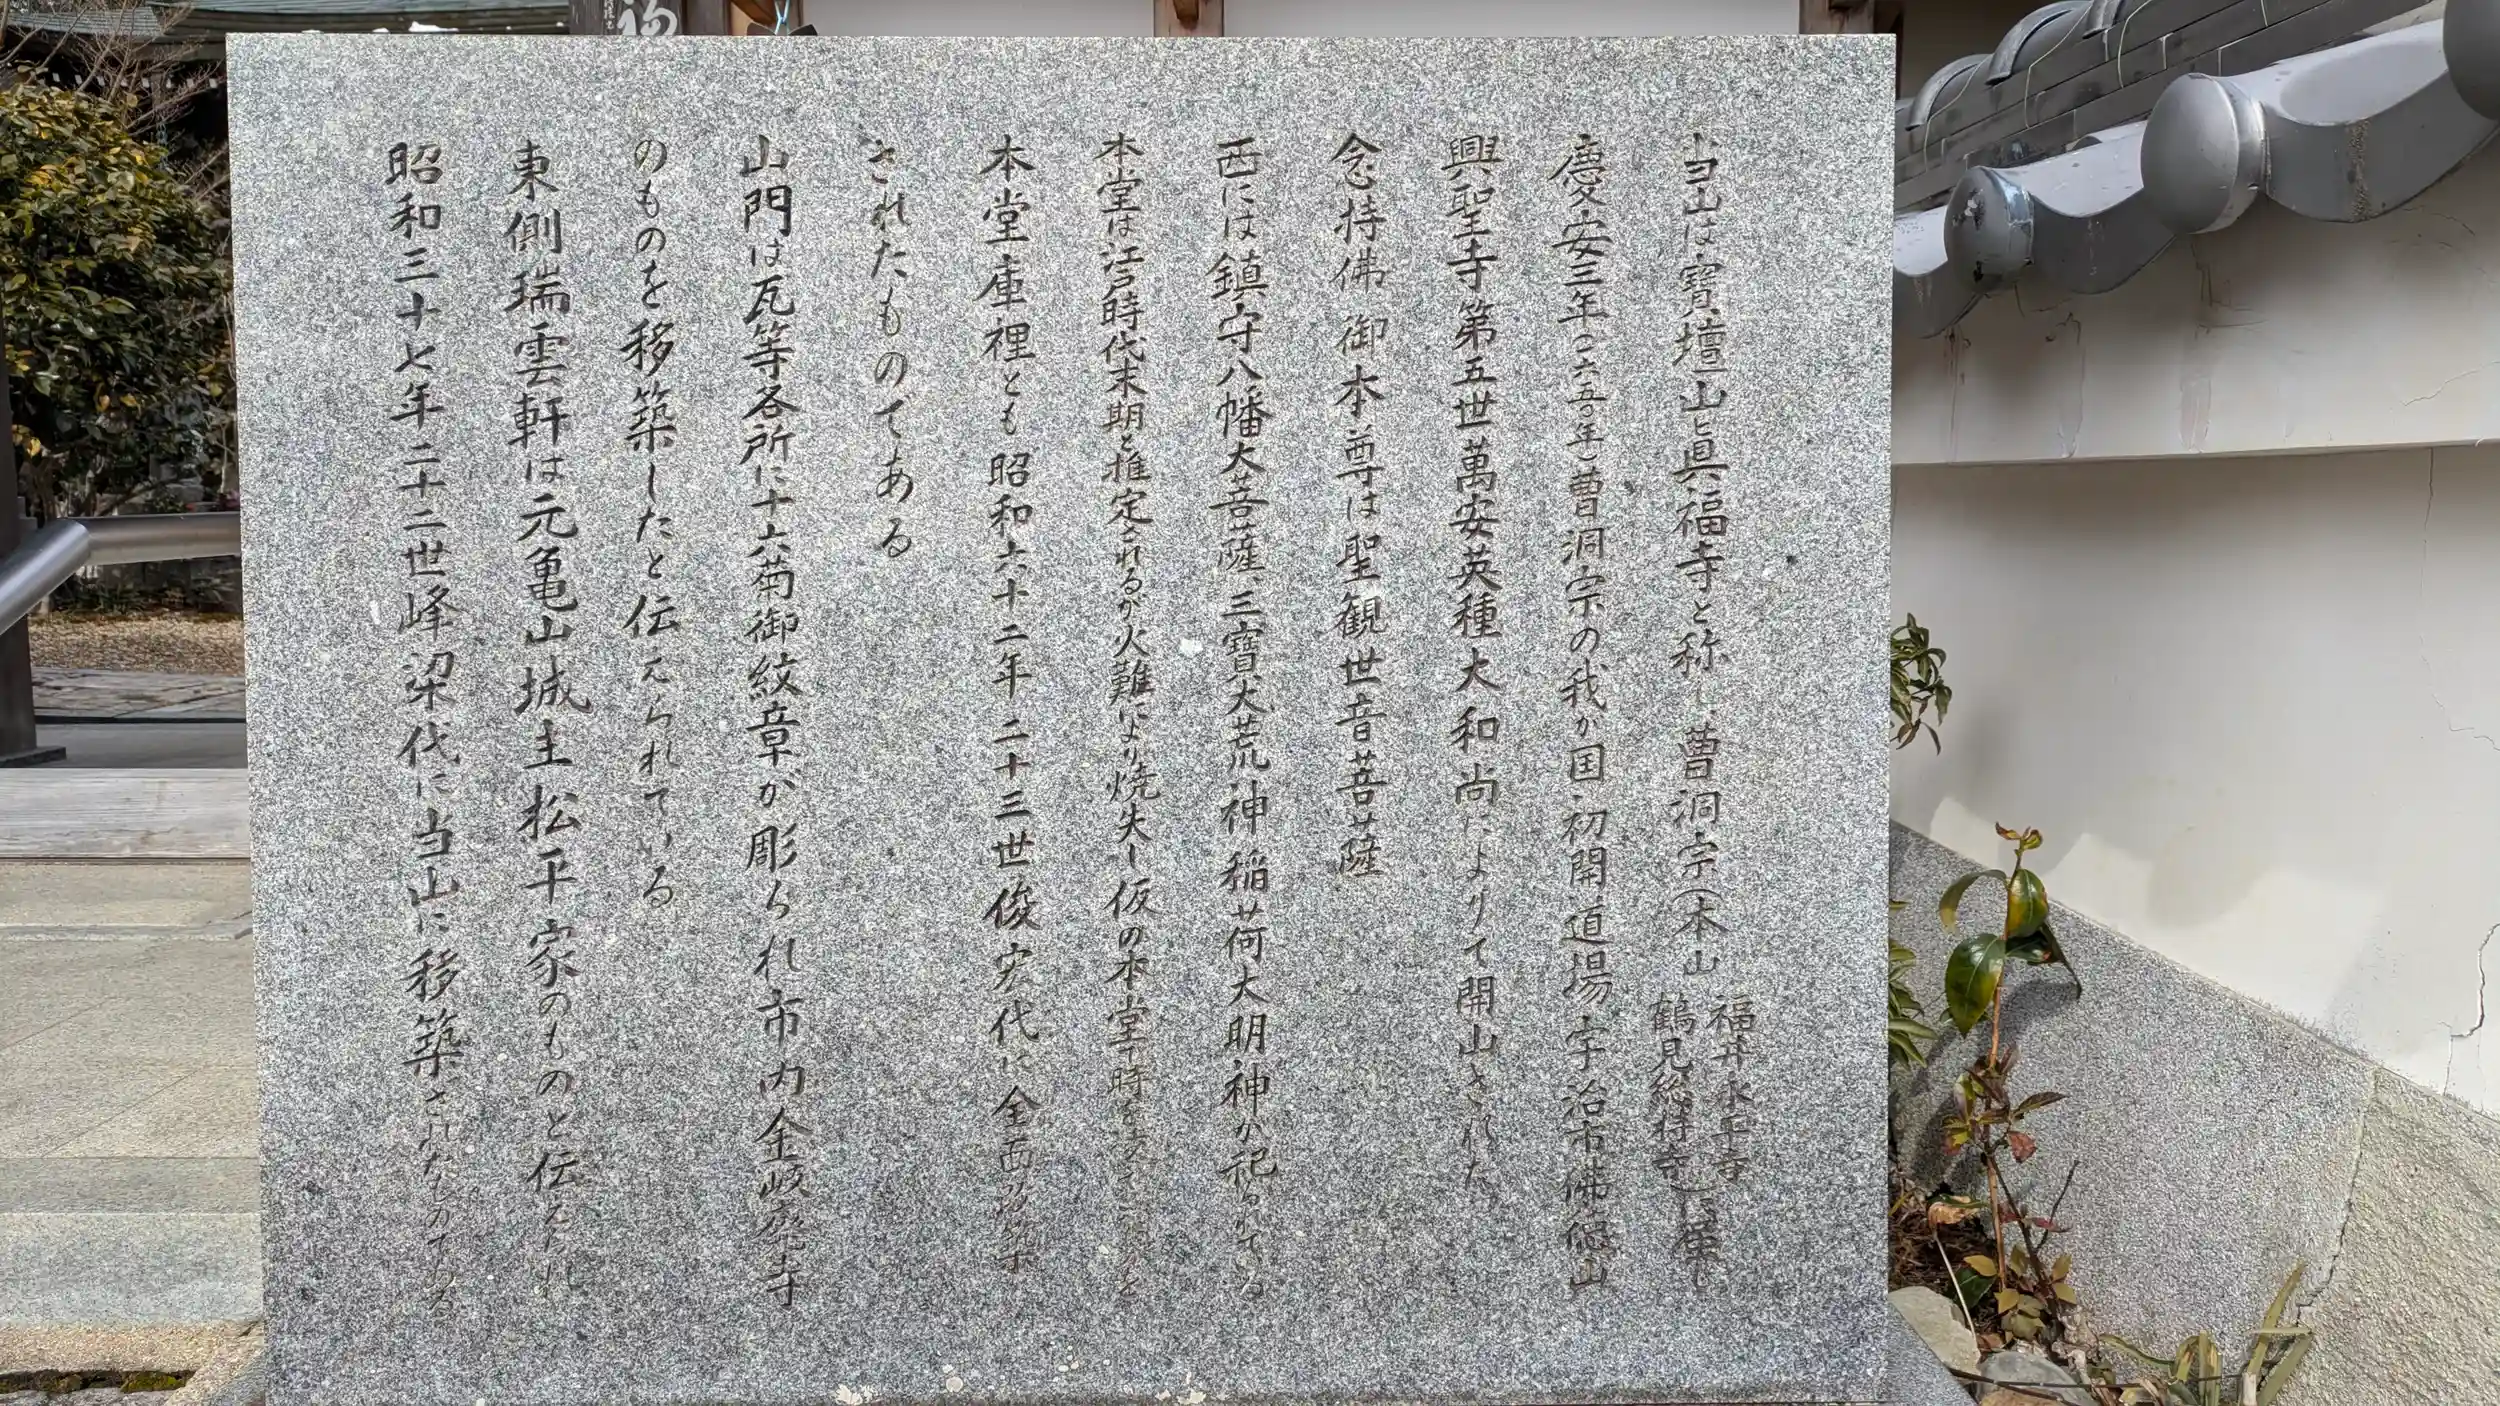 当山は寳壇山眞福寺と称し、曹洞宗(本山 福井永平寺 鶴見総持寺)に属し
慶安三年(一六五〇年)曹洞宗の我が国初開道場宇治市佛徳山
興聖寺第五世萬安英種大和尚によりて開山された。
念持佛御本尊は聖観世音菩薩
西には鎮守八幡大菩薩、三寶大荒神稲荷大明神が祀られてる
本堂は江戸時代末期と推定されるが火難により焼失し仮の本堂で時を
本堂庫裡とも昭和六十二年二十三世俊宏代に全面改築
されたものである
山門は瓦等各所に十六菊御紋章が彫られ市内金岐廃寺
のものを移築したと伝えられている
東側瑞雲軒は元亀山城主松平家のものと伝えられ
昭和三十七年二十二世峰梁代に当山に移築されたものである